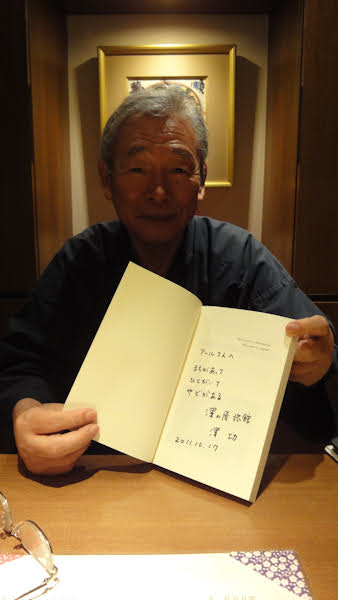 アールさんへ
まちがあって
ひとがいて
やどがある
澤の屋旅館
澤 功
2011.10.17